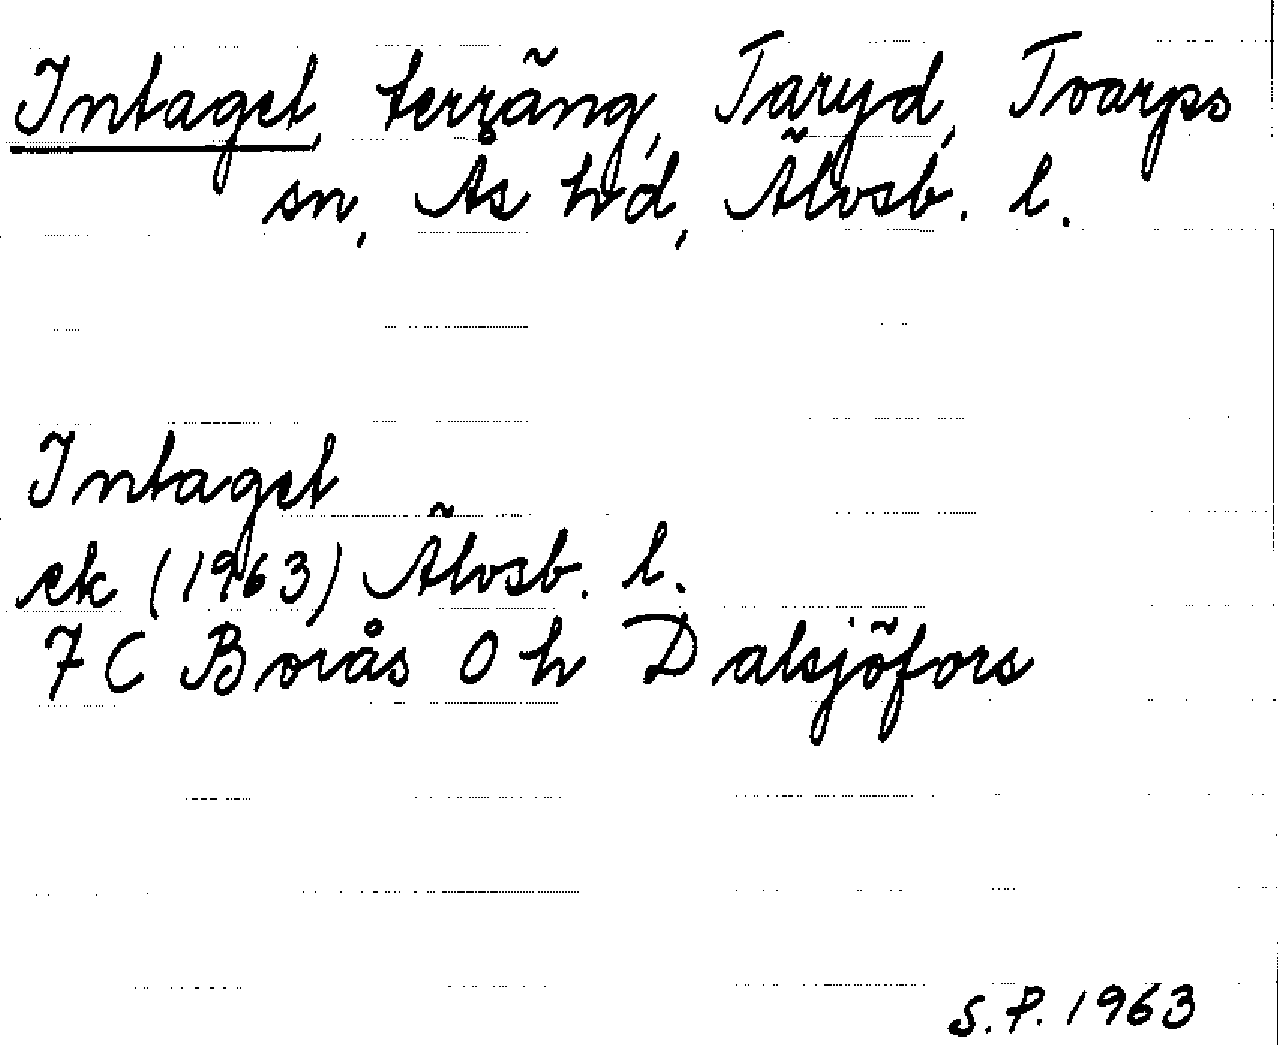 Intaget, terräng, Taryd, Toarps
sn, Ås hd, Älvsb. l.
Intaget
ek (1963) Älvsb. l.
7 C Borås 0 h Dalsjöfors
S.P. 1963